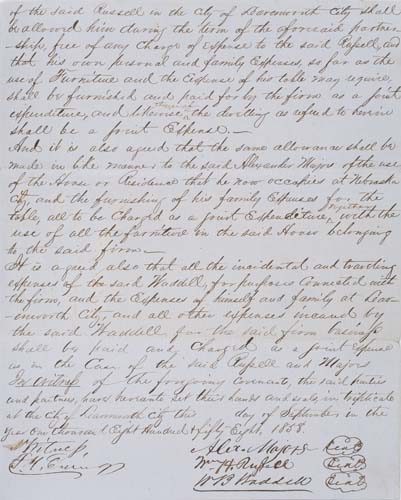 of the said Russell in the City of Leavenworth City shall
be allowed him during the term of the aforesaid partner-
ship, free of any Charge of Expense to the said Russell, and
that his own personal and family Expenses, so far as the
use of Furniture and the Expense of his table may require,
shall be furnished and paid for by the firm as a joint
expenditure, and likewise the dwelling as afores'd herein
shall be a joint Expense.—
And it is also agreed that the same allowance shall be
made in like manner to the said Alexander Majors of the use
of the House or Residence that he now occupies at Nebraska
City, and the furnishing of his family Expenses for the
table, all to be Charged as a joint Expenditure, with the
use of all the furniture in the said House belonging
to the said firm—
It is agreed also that all the incidental and traveling
expenses of the said Waddell, for purposes connected with
the firm, and the Expenses of himself and family at Leav-
enworth City, and all other expenses incurred by
the said Waddell for the said firm business
shall be paid and Charged as a joint expense
as in the Case of the said Russell and Majors
In witness of the foregoing Covenants, the said parties
and partners, have hereunto set their hands and seals, in triplicate
at the City Leavenworth City the day of September in the
year One thousand Eight Hundred & fifty Eight, 1858.
Witness, Alex. Majors Seal
Wm H. Russell Seal
W B Waddell Seal